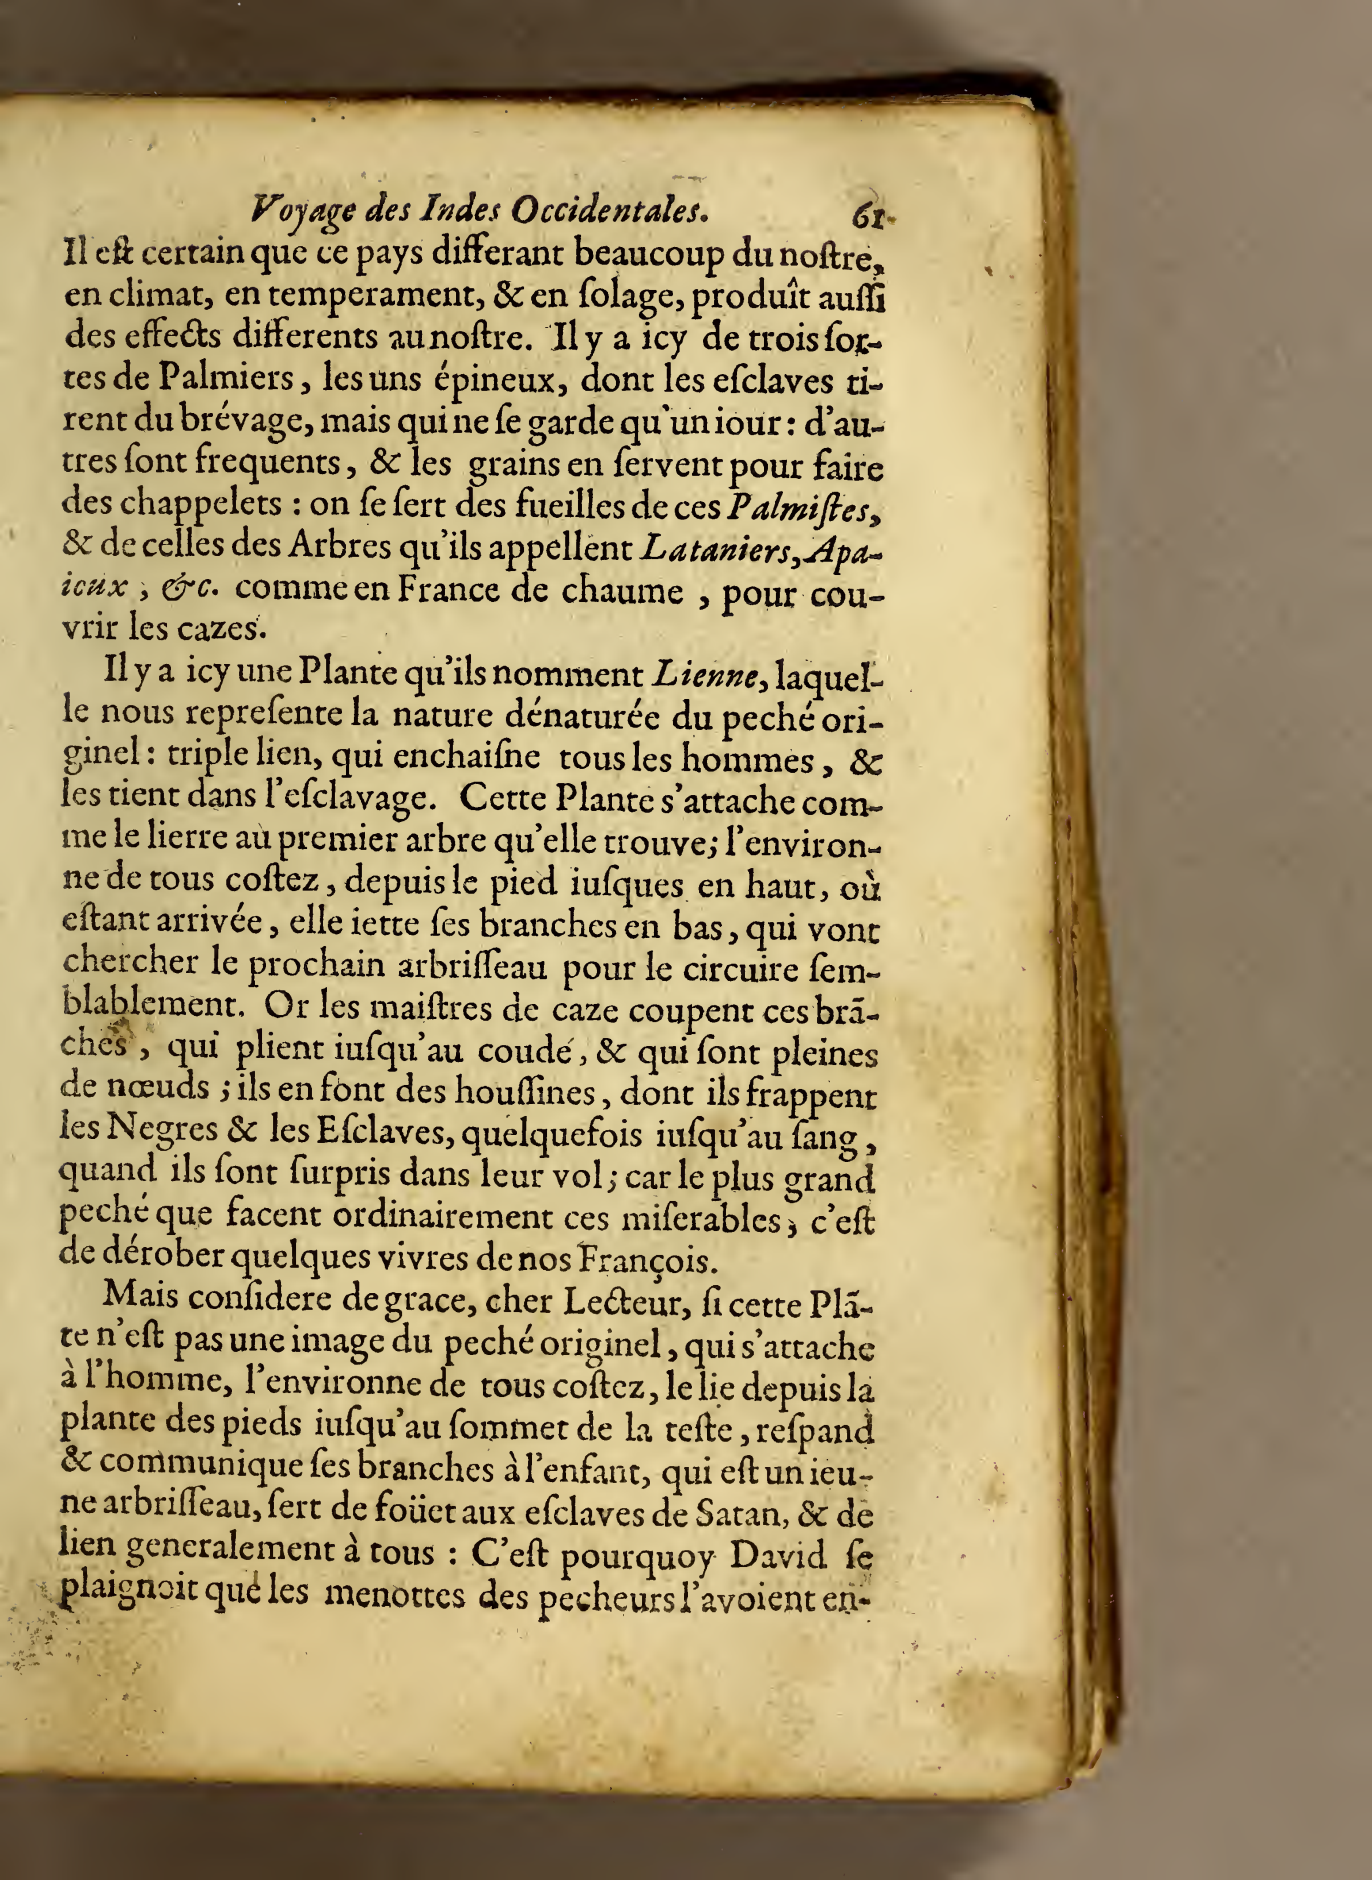 Voyage des Indes Occidentales. 61
Il eſt certain que ce pays differant beaucoup du noſtre,
en climat, en temperament, & en ſolage, produît auſſi
des effects differents au noſtre. Il y a icy de trois ſor-
tes de Palmiers, les uns épineux, dont les eſclaves ti-
rent du brévage, mais qui ne ſe garde qu'un iour: d'au-
tres ſont frequents, & les grains en ſervent pour faire
des chappelets : on ſe ſert des fueilles de ces Palmiſtes,
& de celles des Arbres qu'ils appellent Lataniers, Apa-
ieux, &c. comme en France de chaume, pour cou-
vrir les cazes.
Il y a icy une Plante qu'ils nomment Lienne, laquel-
le nous repreſente la nature dénaturée du peché ori-
ginel: triple lien, qui enchaiſne tous les hommes, &
les tient dans l'eſclavage. Cette Plante s'attache com-
me le lierre au premier arbre qu'elle trouve; l'environ-
ne de tous coſtez, depuis le pied iuſques en haut, où
eſtant arrivée, elle iette ſes branches en bas, qui vont
chercher le prochain arbriſſeau pour le circuire ſem-
blablement. Or les maiſtres de caze coupent ces brā-
ches, qui plient iuſqu'au coude, & qui ſont pleines
de nœuds ; ils en font des houſſines, dont ils frappent
les Negres & les Eſclaves, quelquefois iuſqu'au ſang,
quand ils ſont ſurpris dans leur vol; car le plus grand
peché que facent ordinairement ces miſerables, c'eſt
de dérober quelques vivres de nos François.
Mais conſidere de grace, cher Lecteur, ſi cette Plā-
te n'eſt pas une image du peché originel, qui s'attache
à l'homme, l'environne de tous coſtez, le lie depuis la
plante des pieds iuſqu'au ſommet de la teſte, reſpand
& communique ſes branches à l'enfant, qui eſt un ieu-
ne arbriſſeau, ſert de foüet aux eſclaves de Satan, & de
lien generalement à tous : C'eſt pourquoy David ſe
plaignoit que les menottes des pecheurs l'avoient en-